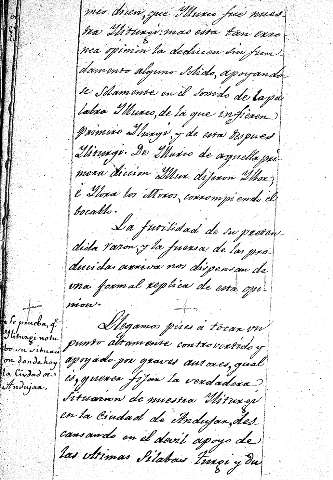 mos dicen, que Yllureo fue nues
tra Yliturgi: mas esta tan erro
nea opinion la deducian sin fun
damento alguno solido, apoyando
se solamente en el sonido de la pa
labra Yllureo, de la que infieren
primero Ylurgi, y de esta despues
Yliturgi. De Ylureo de aquella pri
mera dicion Yllur dijeron Yllor,
è Yllora los Moros, corrompiendo el
bocablo.
La futilidad de su preten
dida razon, y la fuerza de las pro
ducidas arriva nos dispensan de
una formal replica de esta opi
nion.
Llegamos pues à tocar un
punto altamente controvertido y
apoyado por graves autores, qual
es, querer fijar la verdadera
Situacion de nuestra Yliturgi
en la Ciudad de Andujar, des
cansando en el devil apoyo de
las ultimas Silabas turgi y du
Se prueba, q.e
Yliturgi no tu
bo su situaci
on donde hoy
la Ciudad de
Andujar.